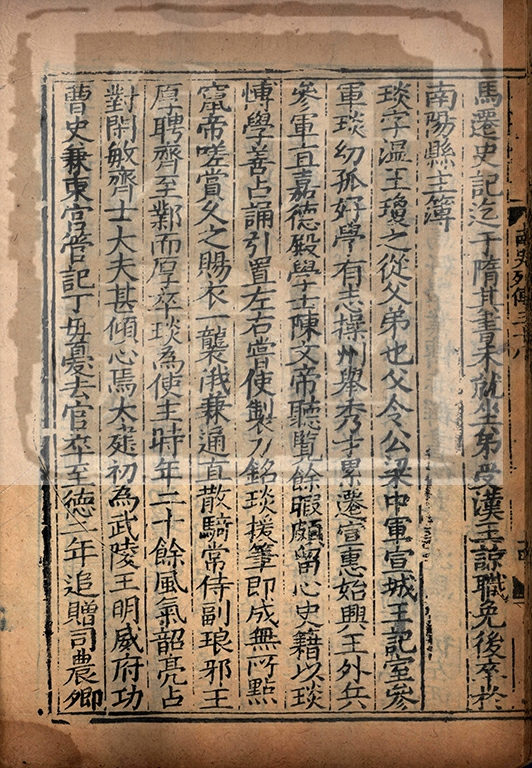 馬遷史記迄于隋其書未就坐弟受漢王諒職免後卒於
南陽縣主簿
琰字温玉瓊之從父弟也父令公梁中軍宣城王記室參
軍琰幼孤好學有志操州舉秀才累遷宣惠始興王外兵
參軍直嘉德殿學士陳文帝聽覽餘暇頗留心史籍以琰
博學善占誦引置左右嘗使製刀銘琰援筆即成無所點
竄帝嗟賞久之賜衣一襲俄兼通直散騎常侍副琅邪王
厚聘齊至鄴而厚卒琰為使主時年二十餘風氣韶亮占
對閑敏齊士大夫甚傾心焉太建初為武陵王明威府功
曹史兼東宮管記丁母憂去官卒至德二年追贈司農卿
南史列傳五十八